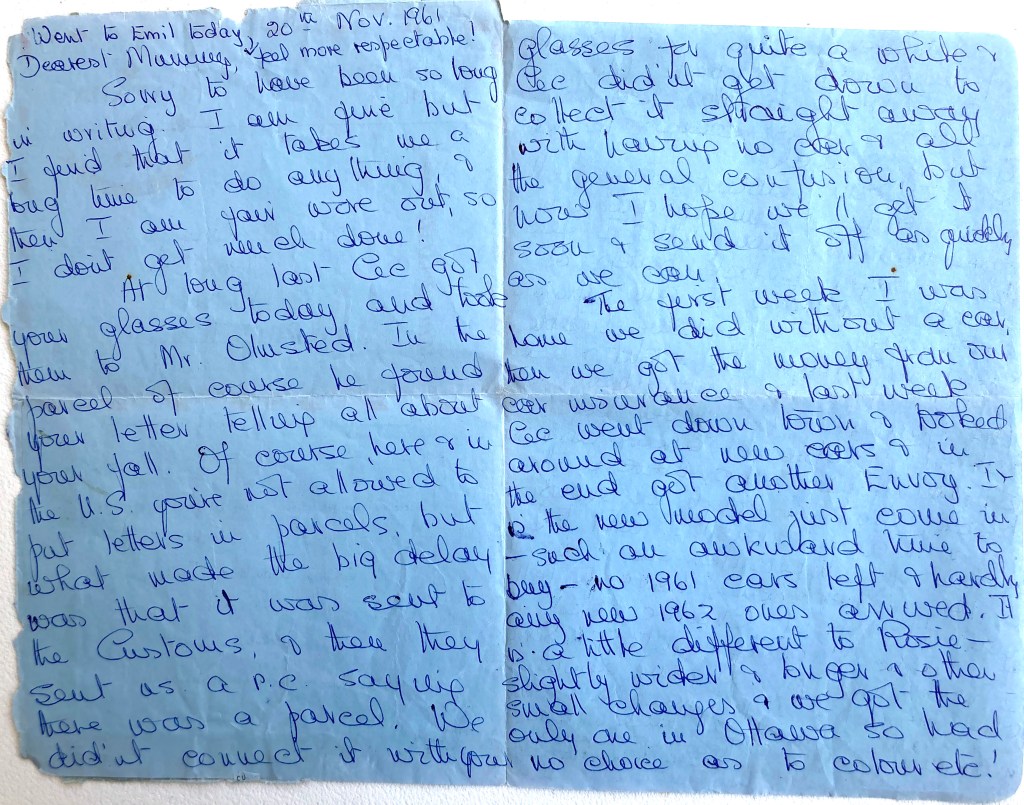 Went to Emil today, feel more respectable!
20th Nov. 1961
Dearest Mummy,
Sorry to have been so long
in writing. I am fine but
I find that it takes me a
long time to do anything, &
then I am fair wore out, so
I don't get much done!
At long last Cec got
your glasses today and took
them to Mr. Olmsted. In the
parcel of course he found
your letter telling all about
your fall. Of course, here & in
the U.S. you're not allowed to
put letters in parcels, but
what made the big delay
was that it was sent to
the Customs, & then they
sent us a p.c. saying
there was a parcel. We
didn't connect it with your
glasses for quite a while &
Cec didn't get down to
collect it straight away
with having no car & all
the general confusion, but
now I hope we'll get it
soon & send it off as quickly
as we can.
The first week I was
home we did without a car,
then we got the money from our
car insurance & last week
Cec went down town & looked
around at new cars & in
the end got another Envoy. It
is the new model just come in
- such an awkward time to
buy - no 1961 cars left & hardly
any new 1962 ones arrived. It
is a little different to Rosie -
slightly wider & longer & other
small changes & we got the
only one in Ottawa so had
no choice as to colour etc!